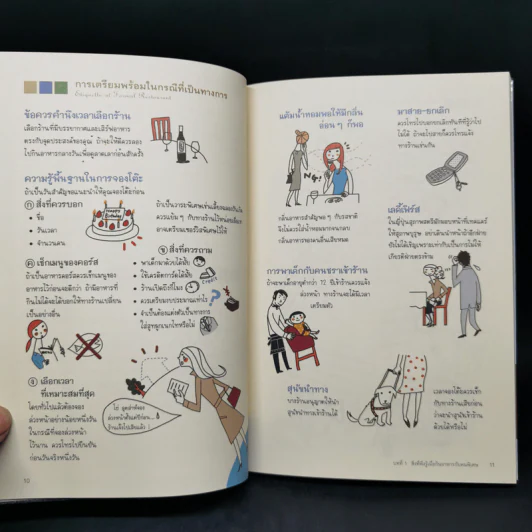 การเตรียมพร้อมในกรณีที่เป็นทางการ
Etiquette at Formal Restaurant
ข้อควรคำนึงเวลาเลือกร้าน
เลือกร้านที่มีบรรยากาศและเสิร์ฟอาหาร
ตรงกับจุดประสงค์ของคุณ ถ้าจะให้ดีควรลอง
ไปกินอาหารกลางวันเพื่อดูลาดเลาก่อนสักครั้ง
ความรู้พื้นฐานในการจองโต๊ะ
ถ้าเป็นวันสำคัญขอแนะนำให้คุณจองโต๊ะก่อน
ก สิ่งที่ควรบอก
• ชื่อ
• วันเวลา
• จำนวนคน
Happy Birthday
ข สิ่งที่ควรถาม
• พาเด็กมาด้วยได้ไหม
• ใช้เครดิตการ์ดได้มั้ย
• ร้านเปิดถึงกี่โมง
• ควรเตรียมงบประมาณเท่าไร
• จำเป็นต้องแต่งตัวเป็นทางการ
ใส่สูทผูกเนกไทหรือไม่
ค เช็กเมนูของคอร์ส
ถ้าเป็นอาหารคอร์สควรเช็กเมนูของ
เป็นอย่างอื่น
ง เลือกเวลา
ที่เหมาะสมที่สุด
โดยทั่วไปแล้วต้องจอง
ล่วงหน้าอย่างน้อยหนึ่งวัน
ในกรณีที่จองล่วงหน้า
ไว้นาน ควรโทรไปยืนยัน
ก่อนวันจริงหนึ่งวัน
10
แต้มน้ำหอมพอให้มีกลิ่น
อ่อนๆ ก็พอ
กลิ่นอาหารสำคัญพอๆ กับรสชาติ
จึงไม่ควรใส่น้ำหอมมากจนกลบ
กลิ่นอาหารของคนอื่นเสียหมด
การพาเด็กกับคนชราเข้าร้าน
ถ้าจะพาเด็กอายุต่ำกว่า 12 ปีเข้าร้านควรแจ้ง
ล่วงหน้า ทางร้านจะได้มีเวลา
เตรียมตัว
สุนัขนำทาง
บางร้านอนุญาตให้นำ
สุนัขนำทางเข้าร้านได้
มาสาย-ยกเลิก
ควรโทรไปบอกยกเลิกทันทีที่รู้ว่าไป
ไม่ได้ ถ้าจะไปสายก็ควรโทรแจ้ง
ทางร้านเช่นกัน
เลดี้เฟิร์ส
เวลาจองโต๊ะควรเช็ก
กับทางร้านเสียก่อน
ว่าจะนำสุนัขเข้าร้าน
ด้วยได้หรือไม่
11